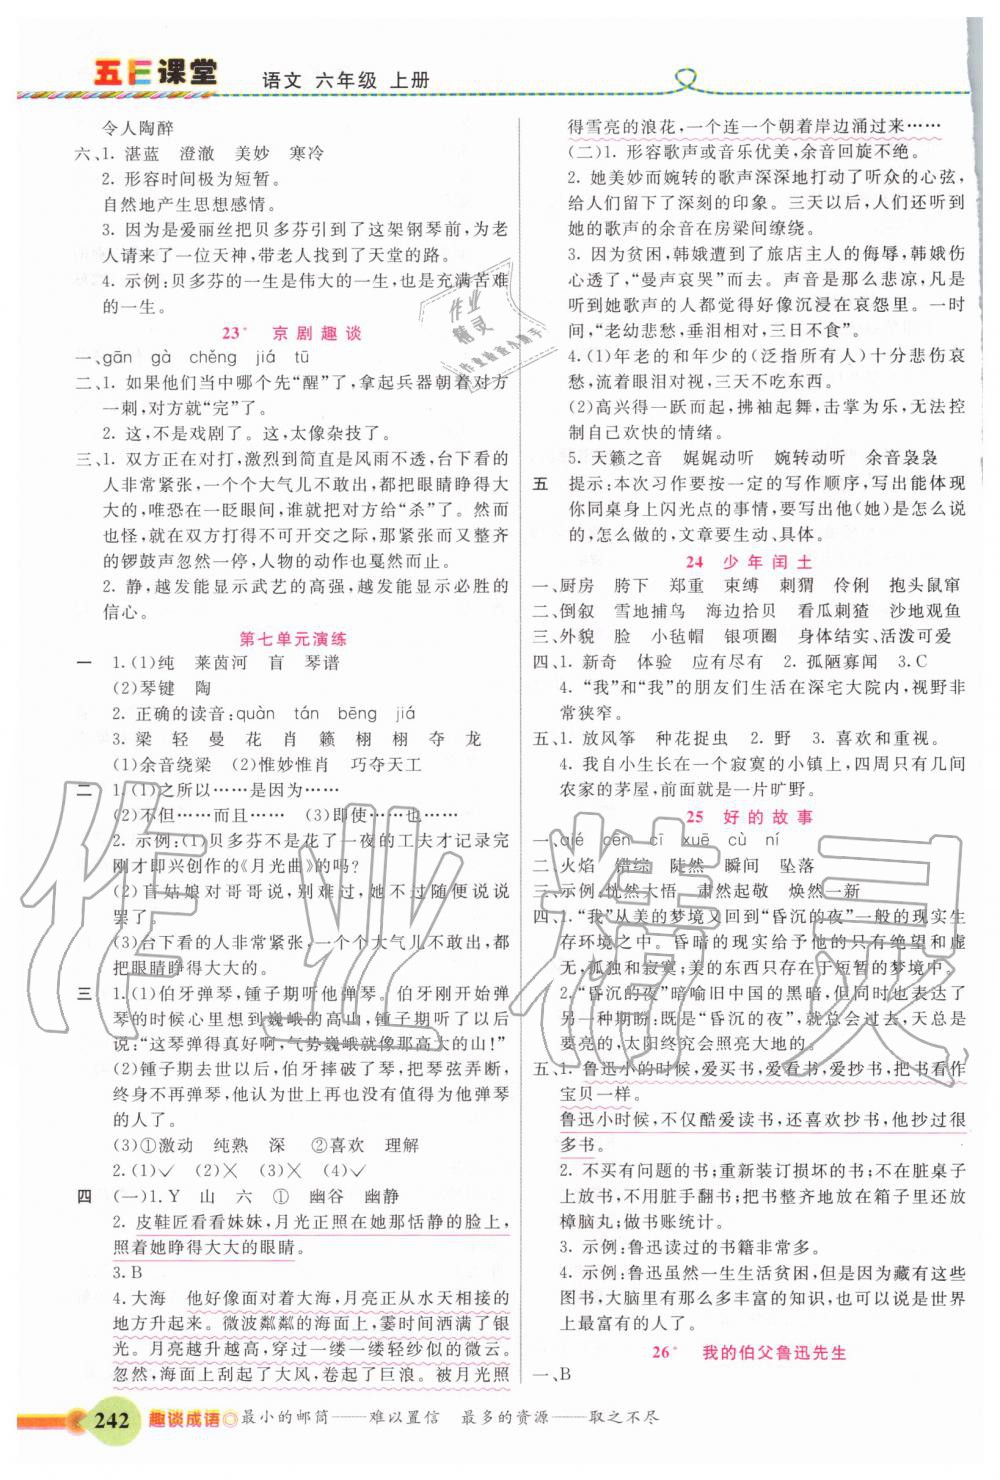 五E课堂
语文 六年级 上册
令人陶醉
六、1. 湛蓝 澄澈 美妙 寒冷
2. 形容时间极为短暂。
自然地产生思想感情。
3. 因为是爱丽丝把贝多芬引到了这架钢琴前,为老
人请来了一位天神,带老人找到了天堂的路。
4. 示例:贝多芬的一生是苦难的一生,也是充满苦难
的一生。
23* 京剧趣谈
一、gān gà chěng jiá tū
二、1. 如果他们当中哪个先“醒”了,拿起兵器朝着对方
一刺,对方就“完”了。
2. 这,不是戏剧了。这,太像杂技了。
三、1. 双方正在对打,激烈到简直是风雨不透,台下看的
人非常紧张,一个个大气儿不敢出,都把眼睛睁得大
大的,唯恐在一眨眼间,谁就把谁给“杀”了。然而,
就在双方打得不可开交之际,那紧张而又格外文明
的锣鼓声忽然一停,人物的动作也戛然而止。
2. 静,越发能显示武艺的高强,越发能显示必胜的
信心。
第七单元演练
一 1.(1)纯 莱茵河 盲 琴谱
(2)琴键 陶
2. 正确的读音:quàn tán bēng jiá
3. 梁 轻 曼 花 肖 籁 栩 栩 夺 龙
(1)余音绕梁 (2)惟妙惟肖 巧夺天工
二 1.(1)之所以……是因为……
(2)不但……而且…… (3)即使……也……
2. 示例:(1)贝多芬不是花了一夜的工夫才记录完
刚才即兴创作的《月光曲》的吗?
(2)盲姑娘对哥哥说,别难过,她不过随便说说
罢了。
(3)台下看的人非常紧张,一个个大气儿不敢出,都
把眼睛睁得大大的。
三 1.(1)伯牙弹琴,锺子期听他弹琴。伯牙刚开始弹
琴的时候心里想到巍峨的高山,锺子期听了以后
说:“这琴弹得真好啊!气势巍峨就像那高大的山!”
(2)锺子期去世以后,伯牙摔坏了琴,把琴弦弄断,
终身不再弹琴,他认为世上再也没有值得他为之弹琴
的人了。
(3)①激动 纯熟 深 ②喜欢 理解
2.(1)✓ (2)✕ (3)✕ (4)✓
四 (一)1.Y 山 六 ① 幽谷 幽静
2. 皮鞋匠看看妹妹,月光正照在她那恬静的脸上,
照着她睁得大大的眼睛。
3.B
4. 大海 他好像面对着大海,月亮正从水天相接的
地方升起来。微波粼粼的海面上,霎时间洒满了银
光。月亮越升越高,穿过一缕一缕轻纱似的微云。
忽然,海面上刮起了大风,卷起了巨浪。被月光照
得雪亮的浪花,一个连一个朝着岸边涌过来……
(二)1. 形容歌声或音乐优美,余音回旋不绝。
2. 她美妙而婉转的歌声深深地打动了听众的心弦,
给人们留下了深刻的印象。三天以后,人们还听到
她的歌声的余音在房梁间缭绕。
3. 因为贫困,韩娥遭到了旅店主人的侮辱,韩娥伤
心透了,“曼声哀哭”而去。声音是那么悲凉,凡是
听到她歌声的人都觉得好像沉浸在哀怨里。一时
间,“老幼悲愁,垂泪相对,三日不食”。
4.(1)年老的和年少的(泛指所有人)十分悲伤哀
愁,流泪相互对视,三天不吃东西。
(2)高兴得一跃而起,拂袖起舞,击掌为乐,无法控
制自己欢快的情绪。
5. 天籁之音 娓娓动听 婉转动听 余音袅袅
五 提示:本次习作要按一定的写作顺序,写出能体现
你同桌身上闪光点的事情,要写出他(她)是怎么说
的,怎么做的,文章要生动、具体。
24 少年闰土
一、厨房 胯下 郑重 束缚 刺猬 伶俐 抱头鼠窜
二、倒叙 雪地捕鸟 海边拾贝 看瓜刺猹 沙地观鱼
三、外貌 脸 小毡帽 银项圈 身体结实、活泼可爱
四、1. 新奇 体验 应有尽有 2. 孤陋寡闻 3.C
4. “我”和“我”的朋友们生活在深宅大院内,视野非
常狭窄。
五、1. 放风筝 种花捉虫 2. 野 3. 喜欢和重视。
4. 我自小生长在一个寂寞的小镇上,四周只有几间
农家的茅屋,前面就是一片旷野。
25 好的故事
一、qié cēn cī xuē cù ní
二、火焰 错综 陡然 瞬间 坠落
三、示例:恍然大悟 肃然起敬 焕然一新
四、1.“我”从美的梦境又回到“昏沉的夜”一般的现实生
存环境之中。昏暗的现实给予他的只有绝望和虚
无,孤独和寂寞;美的东西只存在于短暂的梦境中。
2.“昏沉的夜”暗喻旧中国的黑暗,但同时也表达了
另一种期盼:既是“昏沉的夜”,就意味着天总是
要亮的,太阳终究会照亮大地的。
五、1. 鲁迅小的时候,爱买书,爱看书,爱抄书,把书看作
宝贝一样。
鲁迅小时候,不仅酷爱读书,还喜欢抄书,他抄过很
多书。
2. 不买有问题的书;重新装订损坏的书;不在脏桌子
上放书,不用脏手翻书;把书整齐地放在箱子里还放
樟脑丸;做书账统计。
3. 示例:鲁迅读过的书籍非常多。
4. 示例:鲁迅虽然一生生活贫困,但是因为藏有这些
图书,从书中获得了那么多丰富的知识,也可以说是世界
上最富有的人了。
26* 我的伯父鲁迅先生
一、B
242 趣谈成语 最小的邮筒——难以置信 最多的资源——取之不尽
作业精灵